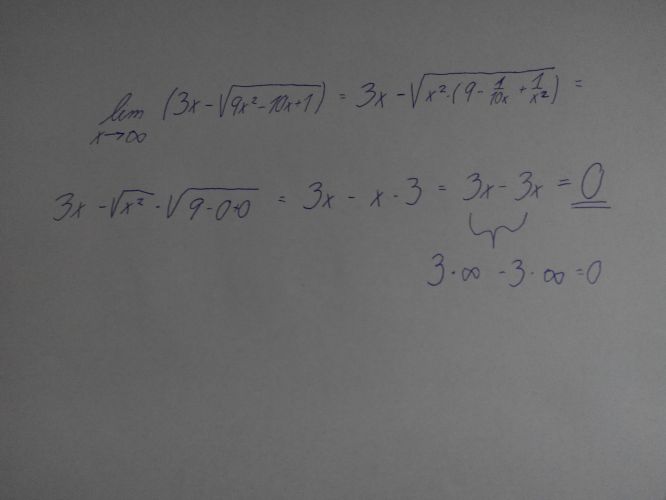 lim (3x - √(9x² - 10x + 1)) = 3x - √(x² · (9 - 1/10x + 1/x²)) =
x→∞
3x - √x² · √(9 - 0 + 0) = 3x - x · 3 = 3x - 3x = 0
3 · ∞ - 3 · ∞ = 0